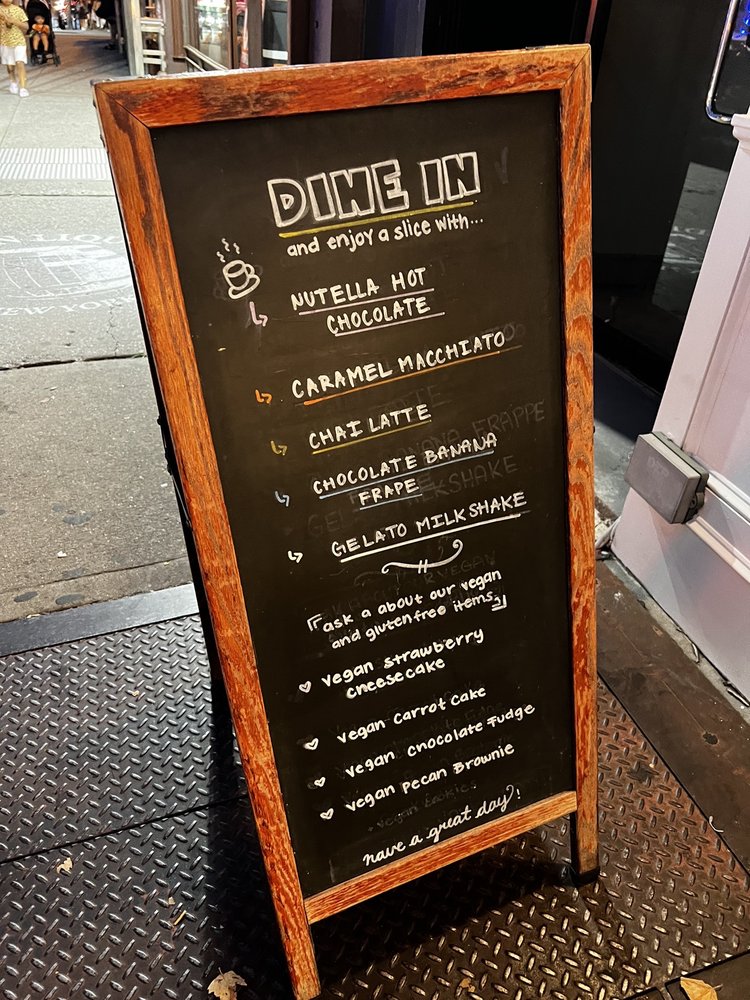 DINE IN
and enjoy a slice with...
NUTELLA HOT
CHOCOLATE
CARAMEL MACCHIATO
CHAI LATTE
CHOCOLATE BANANA
FRAPE
GELATO MILKSHAKE
ask a about our vegan
and gluten free items
vegan strawberry
cheesecake
vegan carrot cake
vegan chocolate Fudge
vegan pecan Brownie
have a great day!